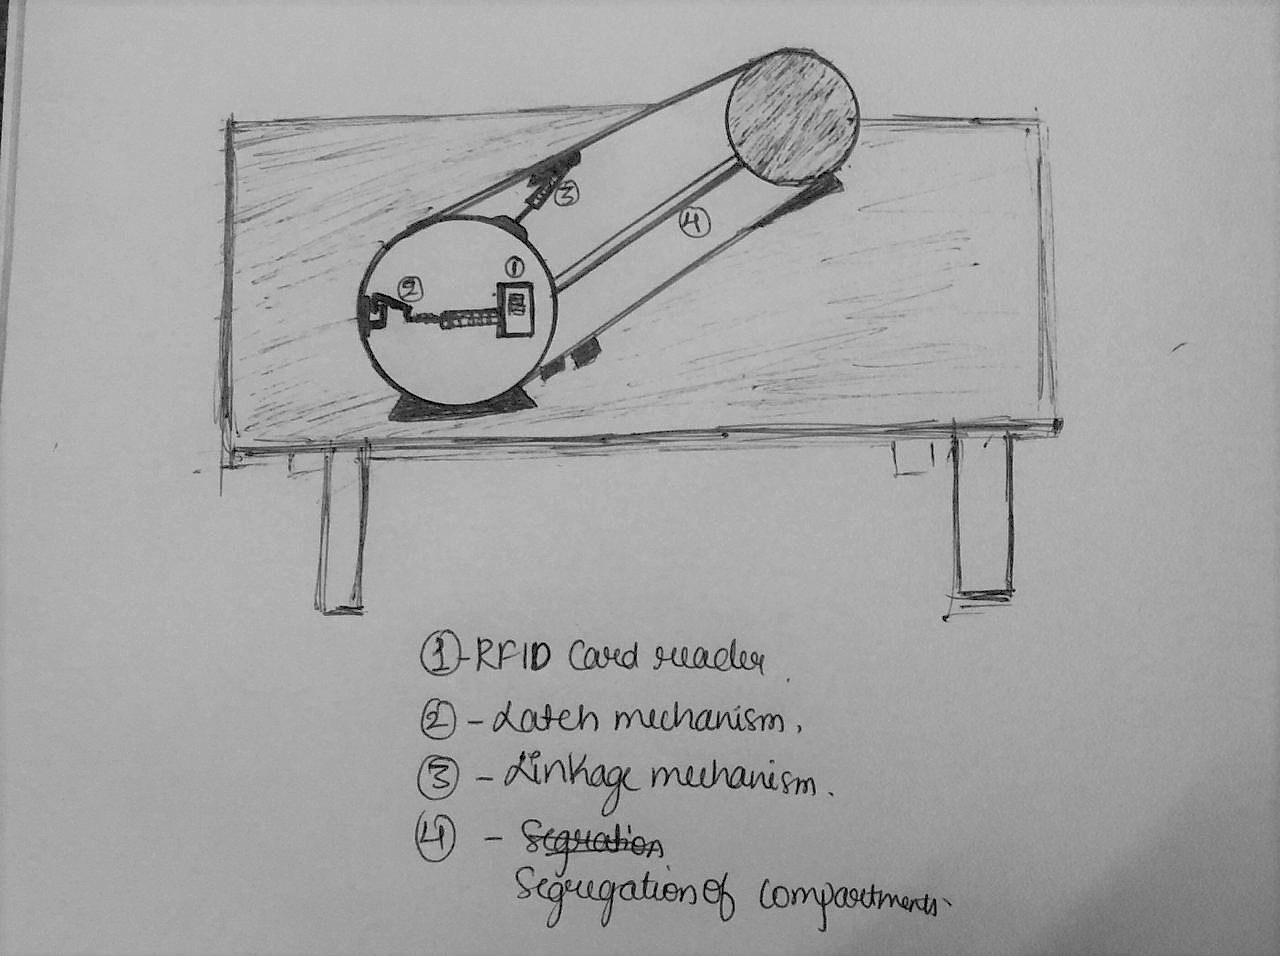 3
4
1
2
1-RFID Card reader.
2 - Latch mechanism,
3 - Linkage mechanism.
4 - Segration
Segregation of compartments.